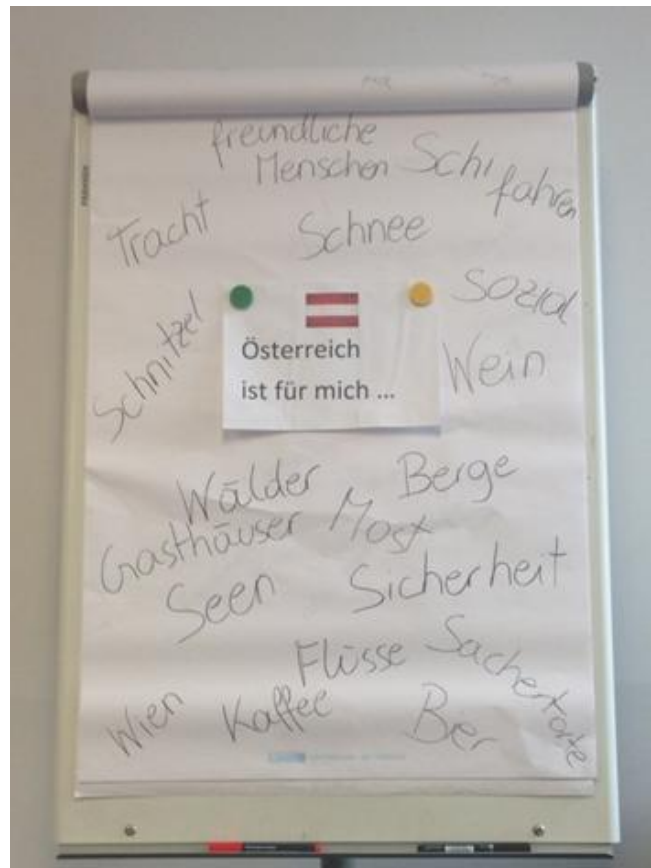 freundliche
Menschen
Schi
fahren
Tracht
Schnee
sozial
Schnitzel
Österreich
ist für mich ...
Wein
Wälder
Berge
Gasthäuser
Most
Seen
Sicherheit
Flüsse
Sachertorte
Wien
Kaffee
Bier